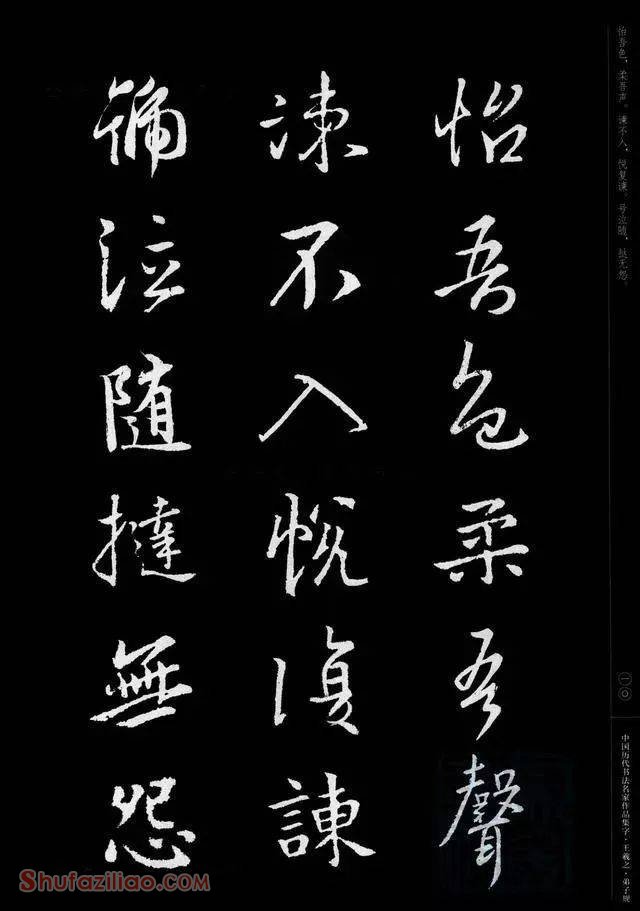 怡吾色柔吾聲
諫不入悅復諫
號泣随撻無怨
怡吾色，柔吾声。谏不入，悦复谏。号泣随，挞无怨。
一〇
中国历代书法名家作品集字·王羲之·弟子规
Shufaziliao.com